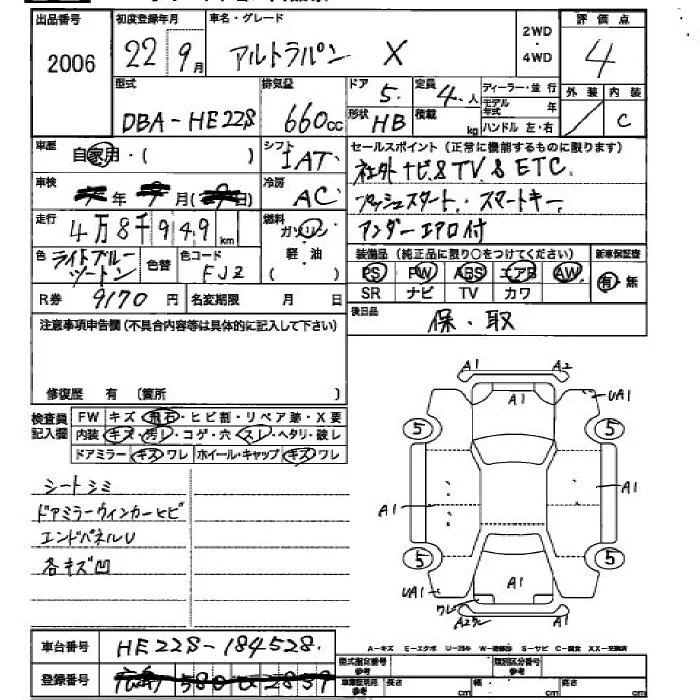 出品番号 初度登録年月 車名・グレード 2WD・4WD 評価点
2006 22年 9月 アルトラパン X 4
型式 排気量 ドア 5. 定員 4.人 ディーラー・並行 外装 内装
DBA-HE22S 660cc 形状 HB 積載 kg モデル年式 年 C
ハンドル 左・右
車歴 自家用・( ) シフト IAT セールスポイント(正常に機能するものに限ります)
社外ナビ&TV & ETC.
車検 年 月( 日) 冷房 AC プッシュスタート.スマートキー.
走行 4万8千949 km 燃料 ガソリン 軽油 アンダーエアロ付
色 ライトブルーツートン 色替 色コード FJ2 装備品(純正品に限り○をつけてください) 新車保証書
PS PW ABS エアB AW 有・無
R券 9170円 名変期限 月 日 SR ナビ TV カワ
注意事項申告欄(不具合内容等は具体的に記入して下さい) 後日品 保・取
修復歴 有 (箇所 )
検査員記入欄 FW キズ・飛石・ヒビ割・リペア跡・X要
内装 キズ・汚レ・コゲ・穴・スレ・ヘタリ・破レ
ドアミラー キズ・ワレ ホイール・キャップ キズ・ワレ
シートシミ
ドアミラーウィンカーヒビ
エンドパネルU
各キズ凹
A1 A2
A1 UA1
5 5
A1 A1
5 5
UA1 A1
ワレ
車台番号 HE22S-184528.
A-キズ E-エクボ U-凹み W-補修跡 S-サビ C-腐食 XX-交換済
登録番号 580 2859
型式指定番号 参考 類別区分番号 参考
車庫証明用 参考 長さ cm 幅 cm 高さ cm